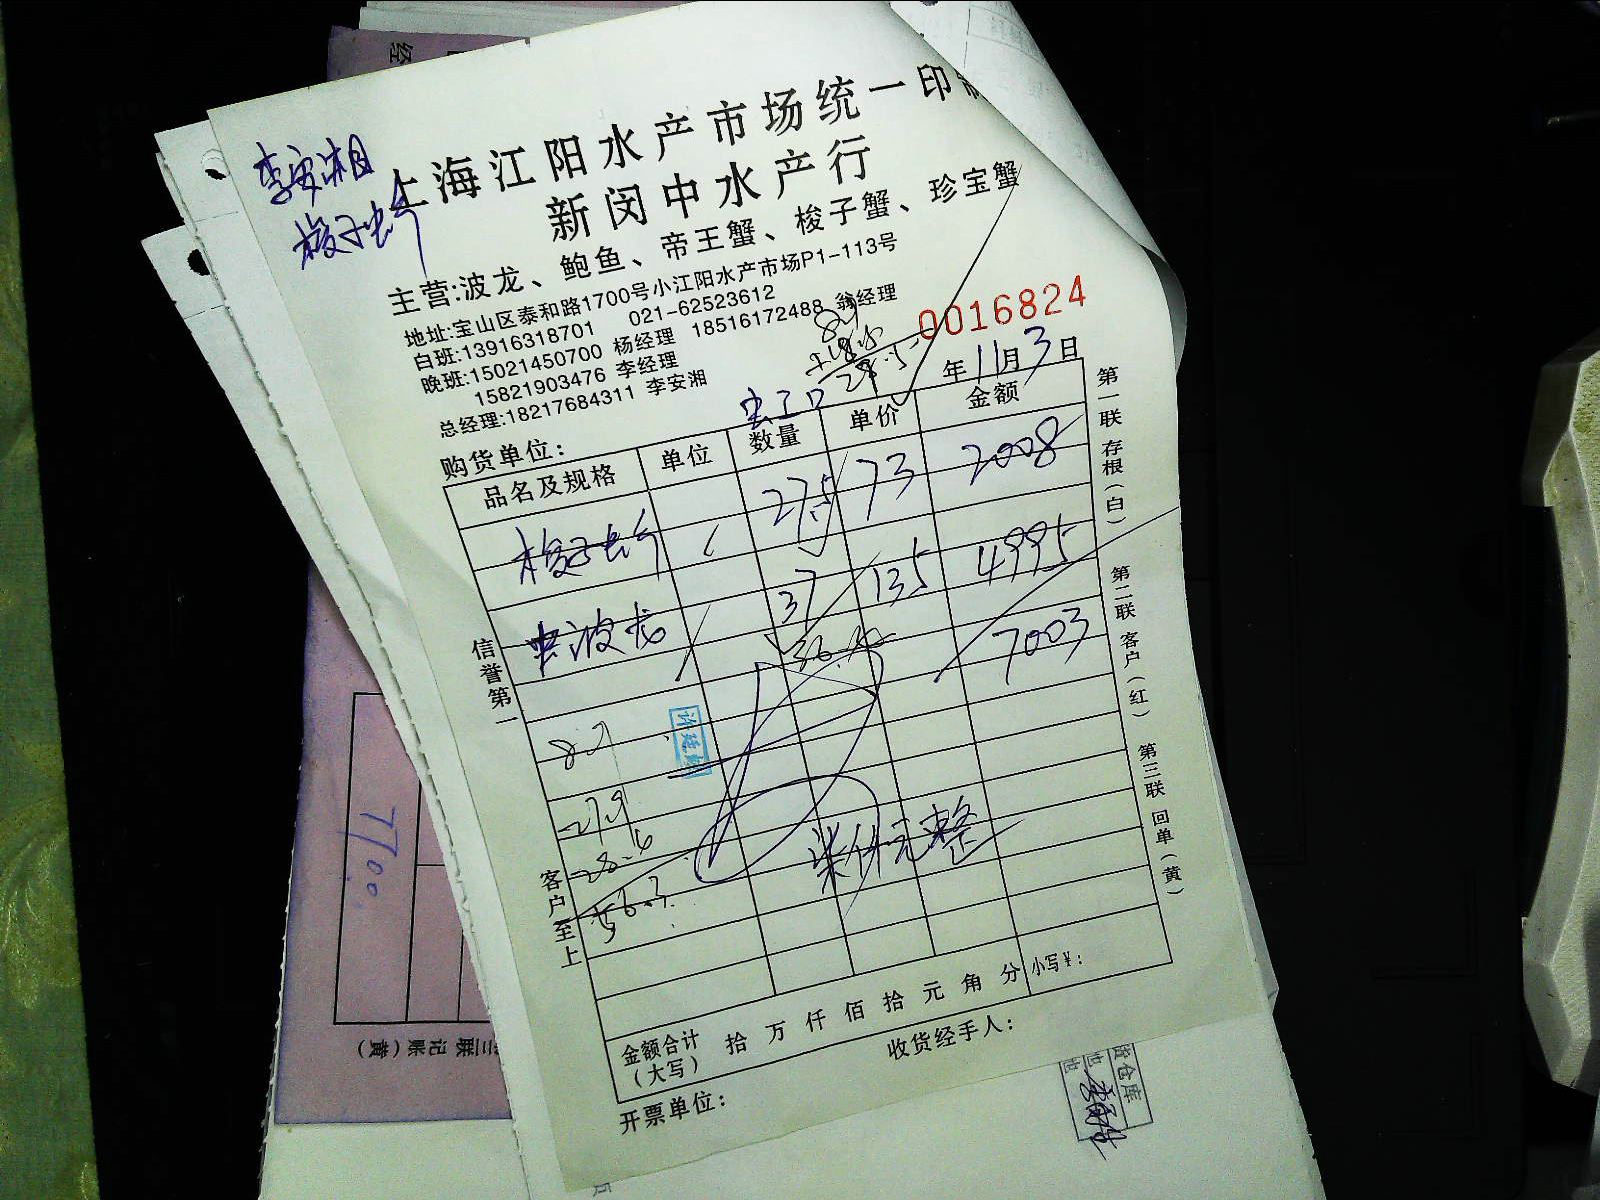 李安湘
梭子蟹
上海江阳水产市场统一印制
新闵中水产行
主营:波龙、鲍鱼、帝王蟹、梭子蟹、珍宝蟹
地址:宝山区泰和路1700号小江阳水产市场P1-113号
白班:13916318701 021-62523612
晚班:15021450700 杨经理 18516172488 翁经理
15821903476 李经理
总经理:18217684311 李安湘
0016824
年 11月 3日
购货单位:
品名及规格 单位 数量 单价 金额
梭子蟹 27.5 73 2008
波龙 37 135 4995
7003
柒仟元整
信誉第一
客户至上
第一联 存根(白) 第二联 客户(红) 第三联 回单(黄)
金额合计(大写) 拾 万 仟 佰 拾 元 角 分 小写¥:
收货经手人:
开票单位: